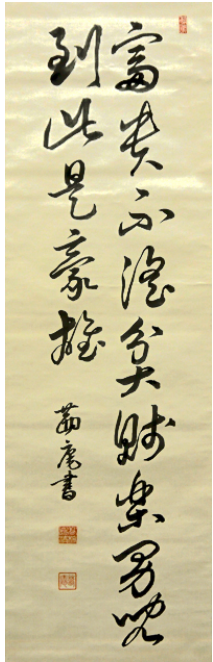 富貴不淫貧賤樂男兒
到此是豪雄
庵書